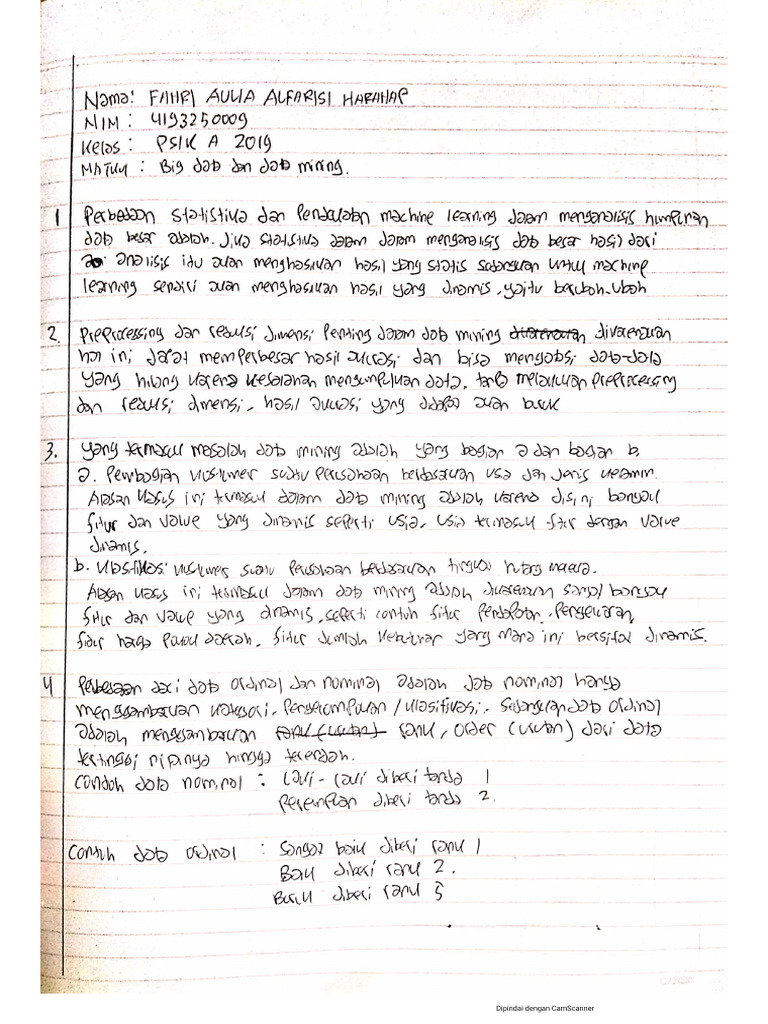 Nama: FAHRI AULIA ALFARISI HARAHAP
NIM : 4193250009
Kelas : PSIK A 2019
MATKUL : Big data dan data mining.
1 Perbedaan statistika dan Pendekatan machine learning dalam menganalisis himpunan
data besar adalah. Jika statistika dalam dalam menganalisis data besar hasil dari
analisis itu akan menghasilkan hasil yang statis sedangkan untuk machine
learning sendiri akan menghasilkan hasil yang dinamis, yaitu berubah-ubah
2. Preprocessing dan reduksi dimensi Penting dalam data mining dikarenakan
hal ini dapat memperbesar hasil akurasi dan bisa mengatasi data-data
yang hilang karena kesalahan mengumpulkan data. tanpa melakukan preprocessing
dan reduksi dimensi, hasil akurasi yang didapat akan buruk
3. yang termasuk masalah data mining adalah yang bagian a dan bagian b.
a. Pembagian kustumer suatu Perusahaan berdasarkan usia dan Jenis kelamin.
Alasan kasus ini termasuk dalam data mining adalah karena disini banyak
fitur dan value yang dinamis seperti usia, usia termasuk fitur dengan value
dinamis.
b. kustumer suatu Perusahaan berdasarkan tingkat hutang mereka.
Alasan kasus ini termasuk dalam data mining adalah dikarenakan sangat banyak
fitur dan value yang dinamis, seperti contoh fitur Pendapatan, Pengeluaran,
fitur harga daerah, fitur Jumlah yang mana ini bersifat dinamis.
4 Perbedaan dari data ordinal dan nominal adalah data nominal hanya
menggambarkan kategori, Pengelompokan / klasifikasi. Sedangkan data ordinal
adalah menggambarkan rank (urutan) rank, order (urutan) dari data
tertinggi nilainya hingga terendah.
Contoh data nominal : Laki-laki diberi tanda 1
Perempuan diberi tanda 2.
Contoh data ordinal : Sangat baik diberi rank 1
Baik diberi rank 2.
Buruk diberi rank 3
Dipindai dengan CamScanner